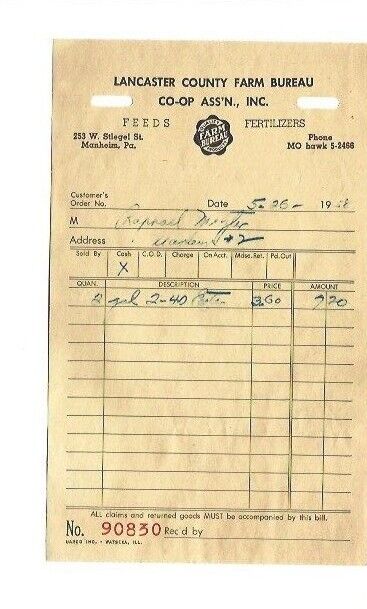 LANCASTER COUNTY FARM BUREAU
CO-OP ASS'N., INC.
FEEDS FERTILIZERS
QUALITY FARM BUREAU PRODUCTS
253 W. Stiegel St.
Manheim, Pa.
Phone
MO hawk 5-2466
Customer's
Order No. Date 5-26- 1958
M Raphael
Address #2
Sold By Cash C.O.D. Charge On Acct. Mdse. Ret. Pd. Out
X
QUAN. DESCRIPTION PRICE AMOUNT
2 gal 2-40 3.60 7.20
ALL claims and returned goods MUST be accompanied by this bill.
No. 90830 Rec'd by
UARCO INC. • WATSEKA, ILL.